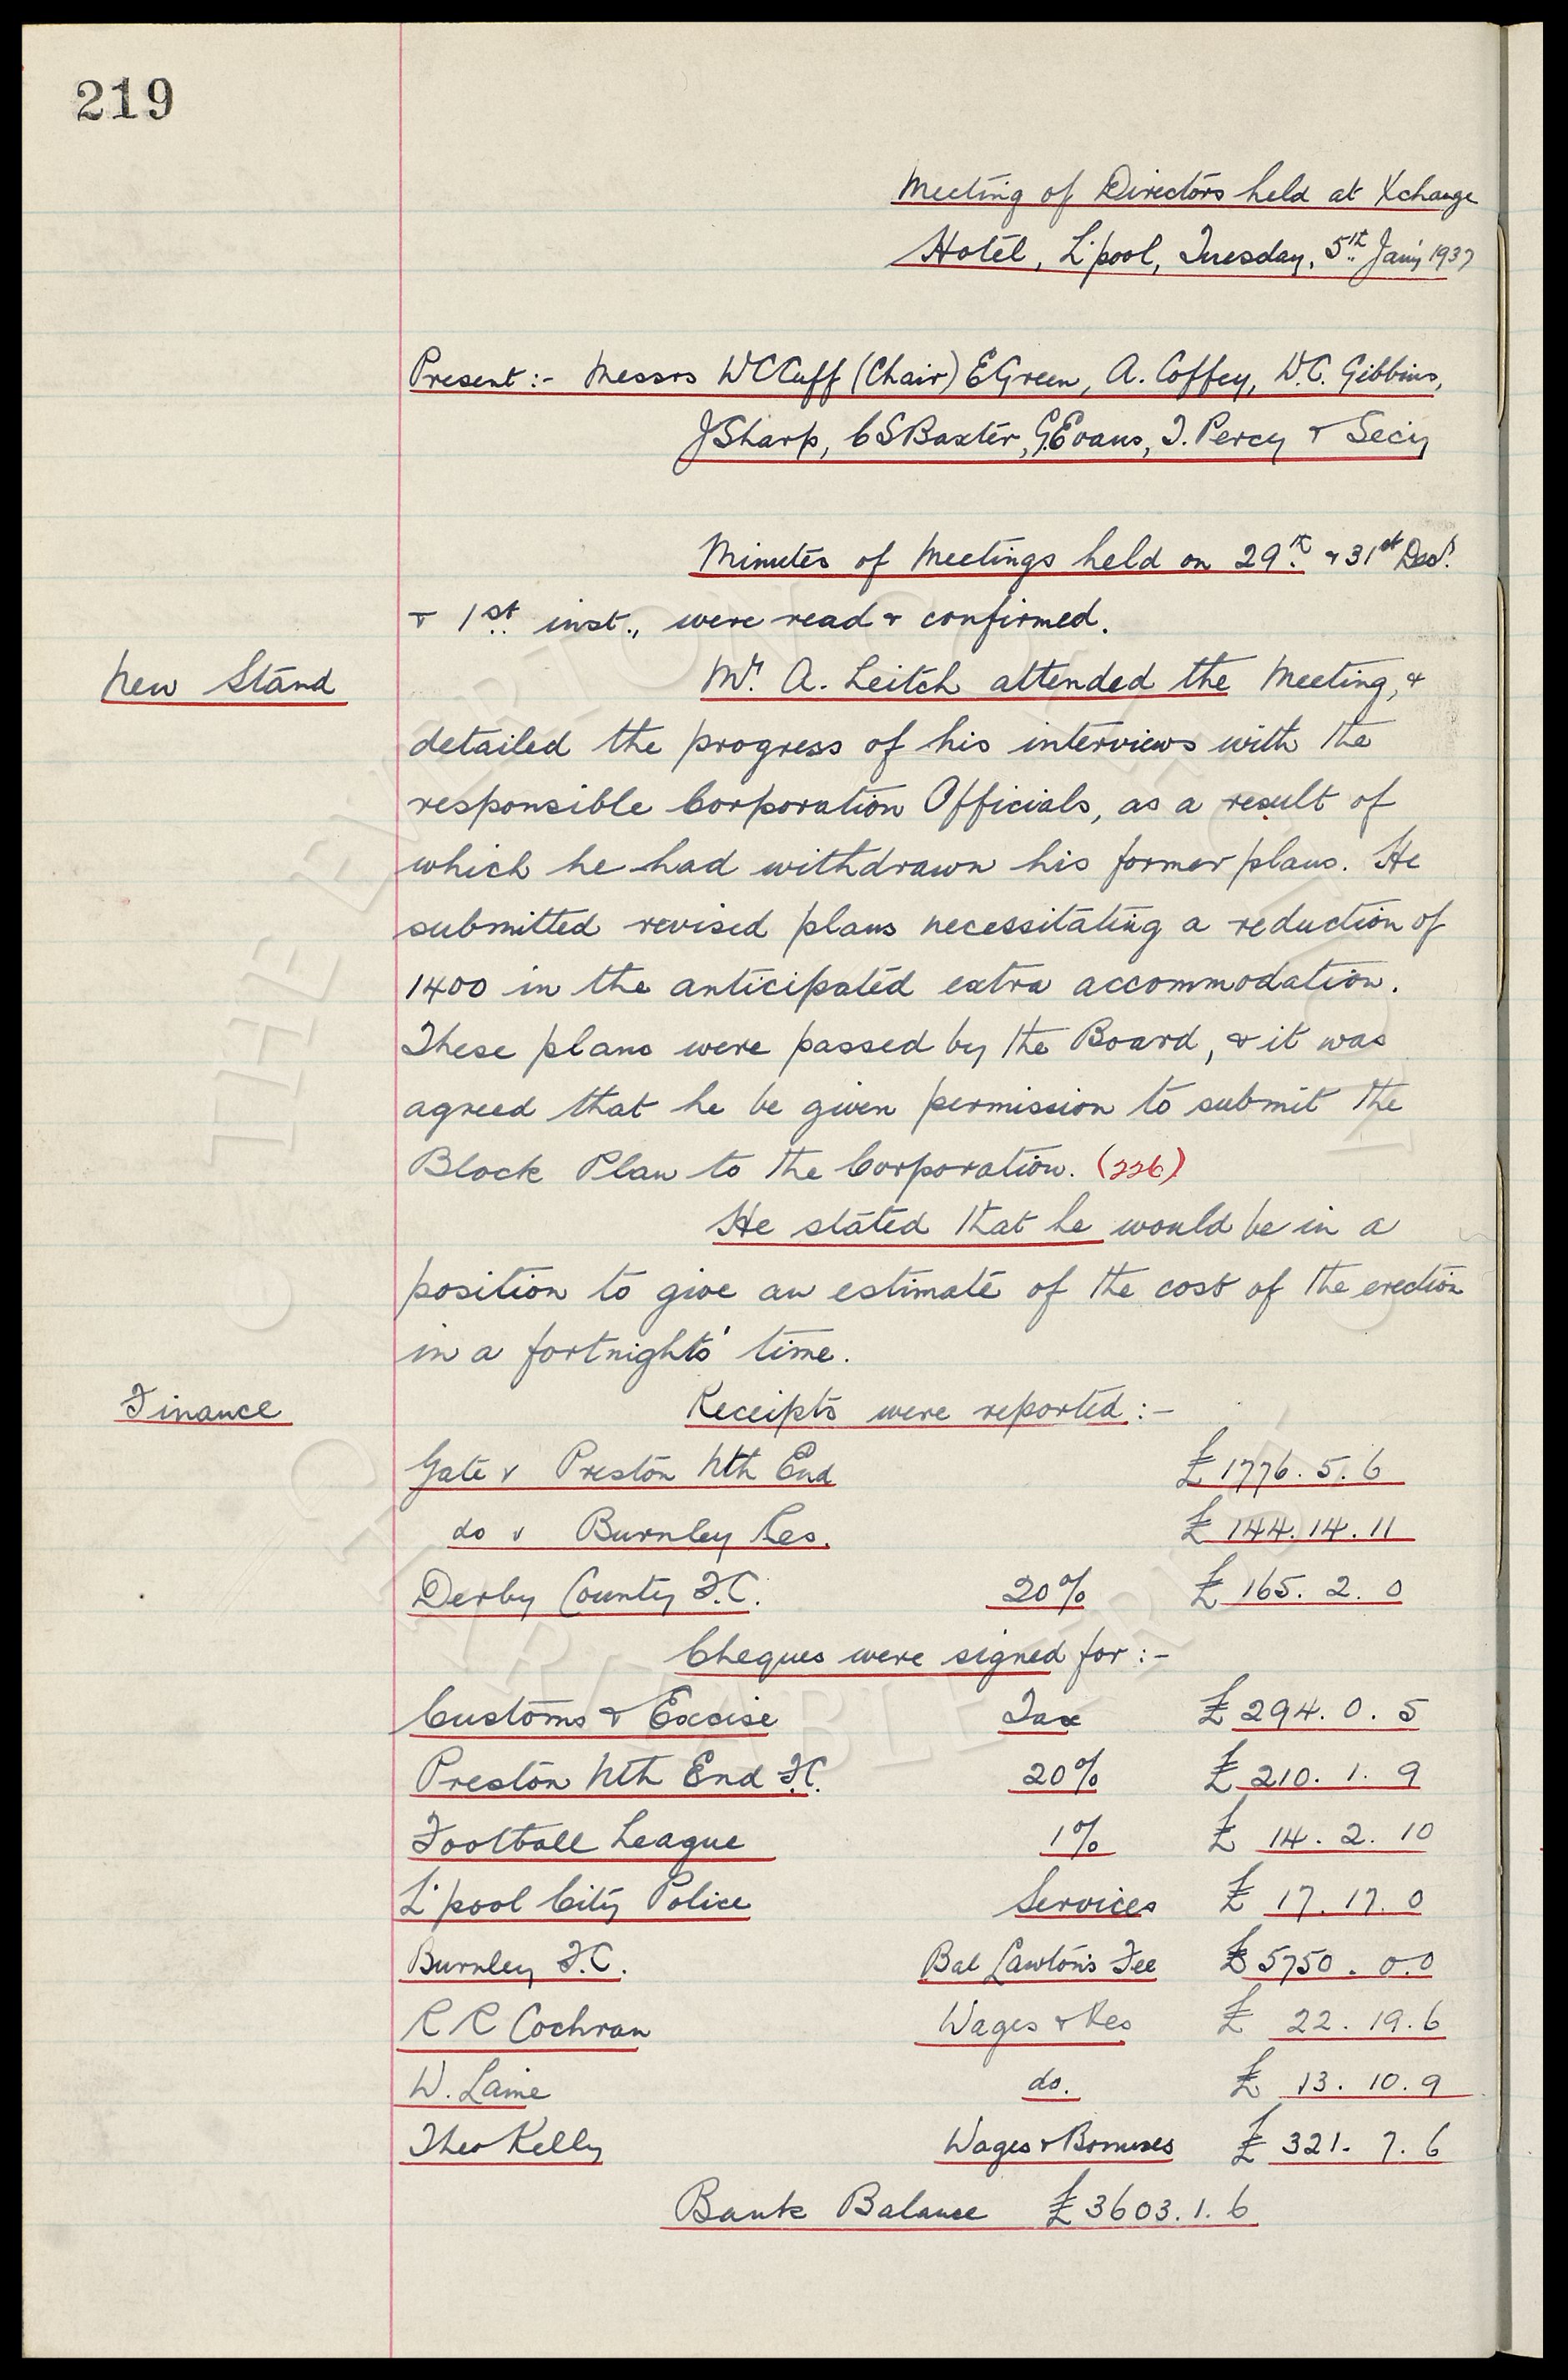 219
Meeting of Directors held at Xchange
Hotel, L'pool, Tuesday, 5th Jan'y 1937
Present :- Messrs W C Cuff (Chair) E Green, A. Coffey, W.C. Gibbins,
J Sharp, C S Baxter, G. Evans, T. Percy & Secy
Minutes of Meetings held on 29th & 31st Decr.
& 1st inst., were read & confirmed.
New Stand
Mr. A. Leitch attended the Meeting, &
detailed the progress of his interviews with the
responsible Corporation Officials, as a result of
which he had withdrawn his former plans. He
submitted revised plans necessitating a reduction of
1400 in the anticipated extra accommodation.
These plans were passed by the Board, & it was
agreed that he be given permission to submit the
Block Plan to the Corporation. (226)
He stated that he would be in a
position to give an estimate of the cost of the erection
in a fortnights' time.
Finance
Receipts were reported :-
Gate v Preston Nth End £ 1776. 5. 6
do v Burnley Res. £ 144. 14. 11
Derby County F.C. 20% £ 165. 2. 0
Cheques were signed for :-
Customs & Excise Tax £ 294. 0. 5
Preston Nth End F.C. 20% £ 210. 1. 9
Football League 1% £ 14. 2. 10
L'pool City Police Services £ 17. 17. 0
Burnley F.C. Bal Lawton's Fee £ 5750. 0.0
R R Cochran Wages & Res £ 22. 19. 6
W. Laine do. £ 13. 10. 9
Theo Kelly Wages & Bonuses £ 321. 7. 6
Bank Balance £ 3603. 1. 6